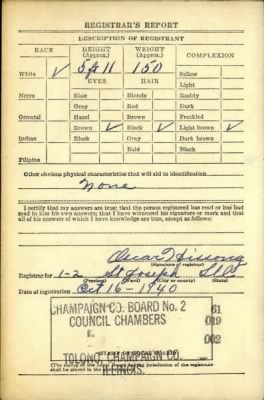 REGISTRAR'S REPORT
DESCRIPTION OF REGISTRANT
RACE HEIGHT (Approx.) WEIGHT (Approx.) COMPLEXION
White ✓ 5 ft 11 150 Sallow
EYES HAIR Light
Negro Blue Blonde Ruddy
Gray Red Dark
Oriental Hazel Brown Freckled
Brown ✓ Black ✓ Light brown ✓
Indian Black Gray Dark brown
Bald Black
Filipino
Other obvious physical characteristics that will aid in identification
None
I certify that my answers are true; that the person registered has read or has had
read to him his own answers; that I have witnessed his signature or mark and that
all of his answers of which I have knowledge are true, except as follows:
Oscar Hissong
(Signature of registrar)
Registrar for 1-2 St Joseph Ills
(Precinct) (Ward) (City or county) (State)
Date of registration Oct 16 - 1940
CHAMPAIGN CO. BOARD No. 2
COUNCIL CHAMBERS
TOLONO, CHAMPAIGN CO.
ILLINOIS.
61
019
002
(STAMP OF LOCAL BOARD)
(The stamp of the Local Board having jurisdiction of the registrant
shall be placed in the above space.)